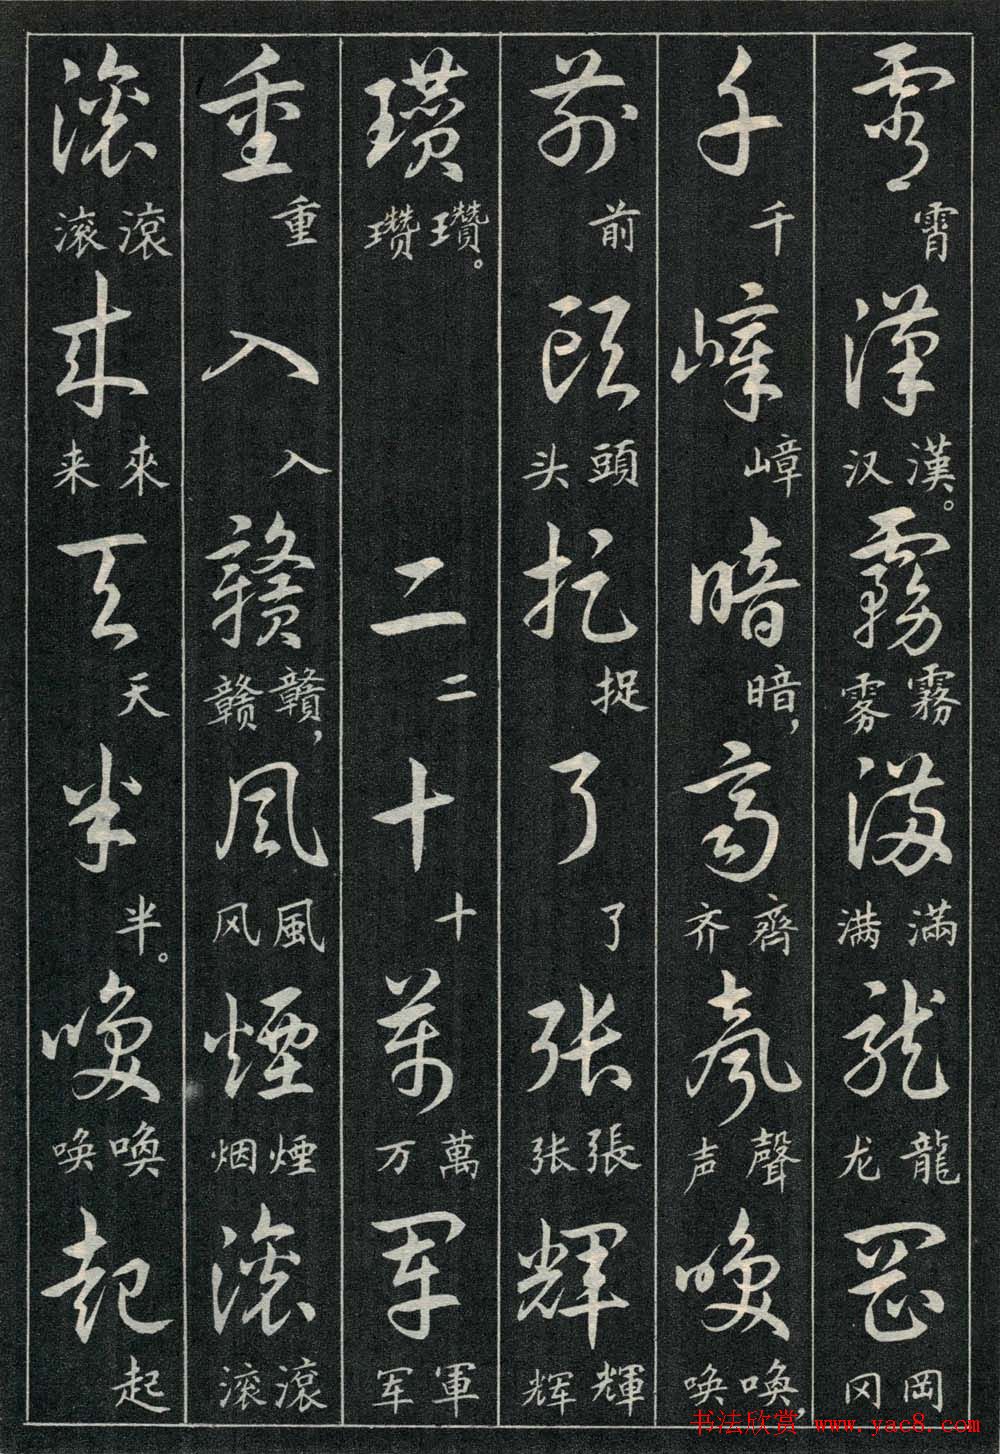 霄霄漢漢。汉霧霧雾滿滿满龍龍龙岡岡冈
千千嶂嶂暗暗，齊齊齐聲聲声喚喚，唤
前前頭頭头捉捉了了張張张輝輝辉
瓚瓚。瓒二二十十萬萬万軍軍军
重重入入贛贛，赣風風风煙煙烟滾滾滚
滾滾滚來來来天天半半。喚喚唤起起
书法欣赏 www.yac8.com